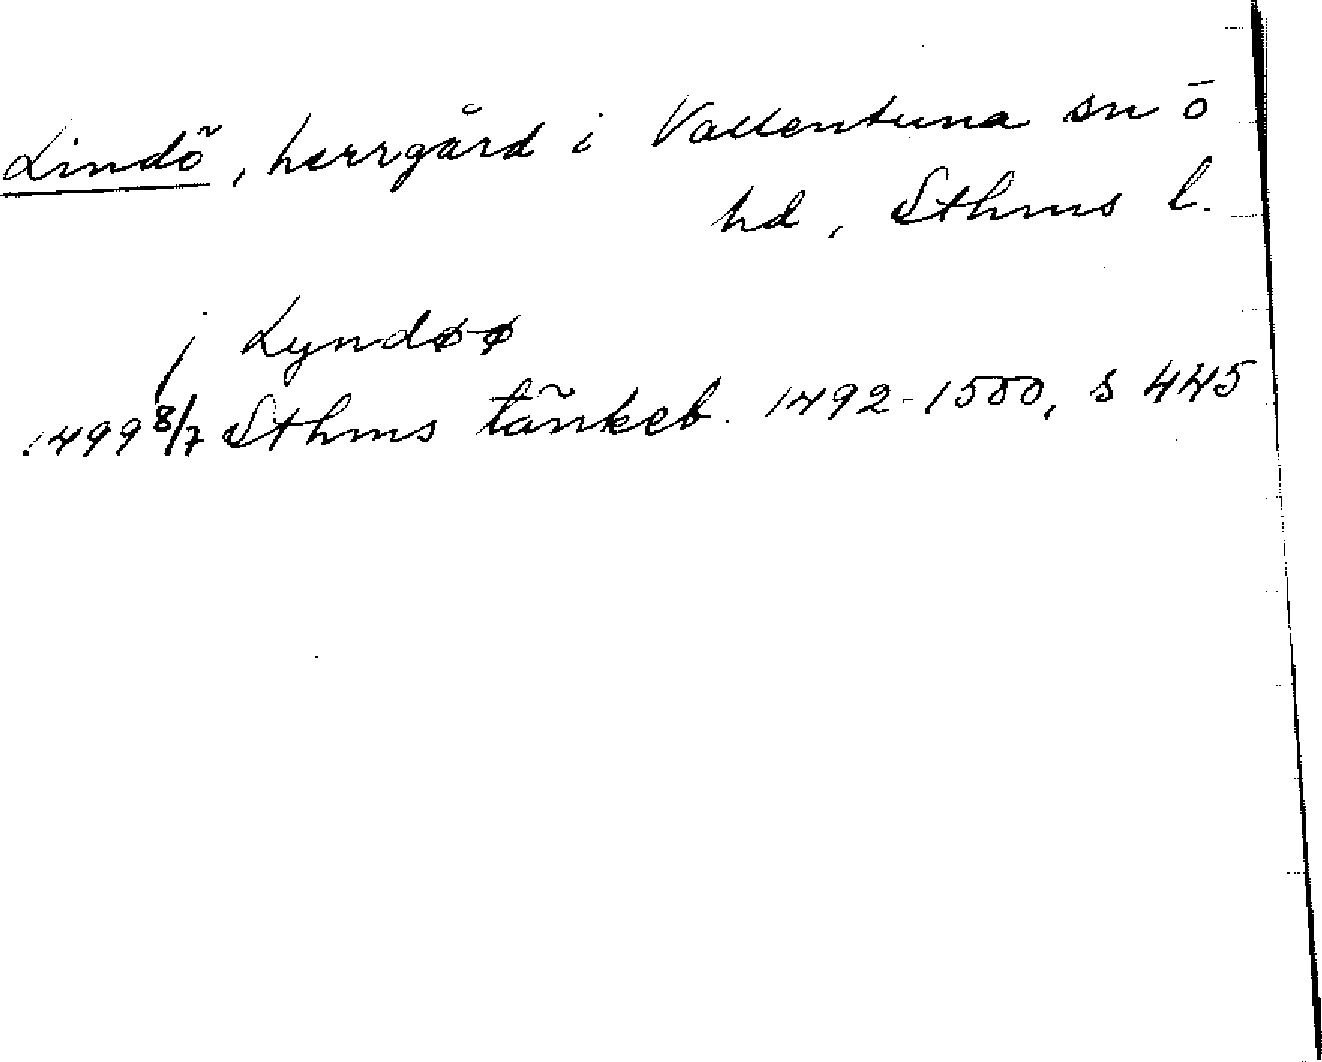 Lindö, herrgård i Vallentuna sn ō
hd, Sthms l.
j Lyndøø
1499 8/7 Sthms tänkeb. 1492-1500, s 445